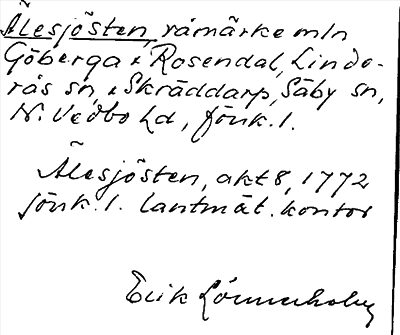 Älesjösten, råmärke mln
Göberga i Rosendal, Linde-
rås sn, i Skräddarp, Säby sn,
N. Vedbo hd, Jönk. l.
Älesjösten, akt 8, 1772
Jönk. l. lantmät. kontor
Erik Lönnerholm